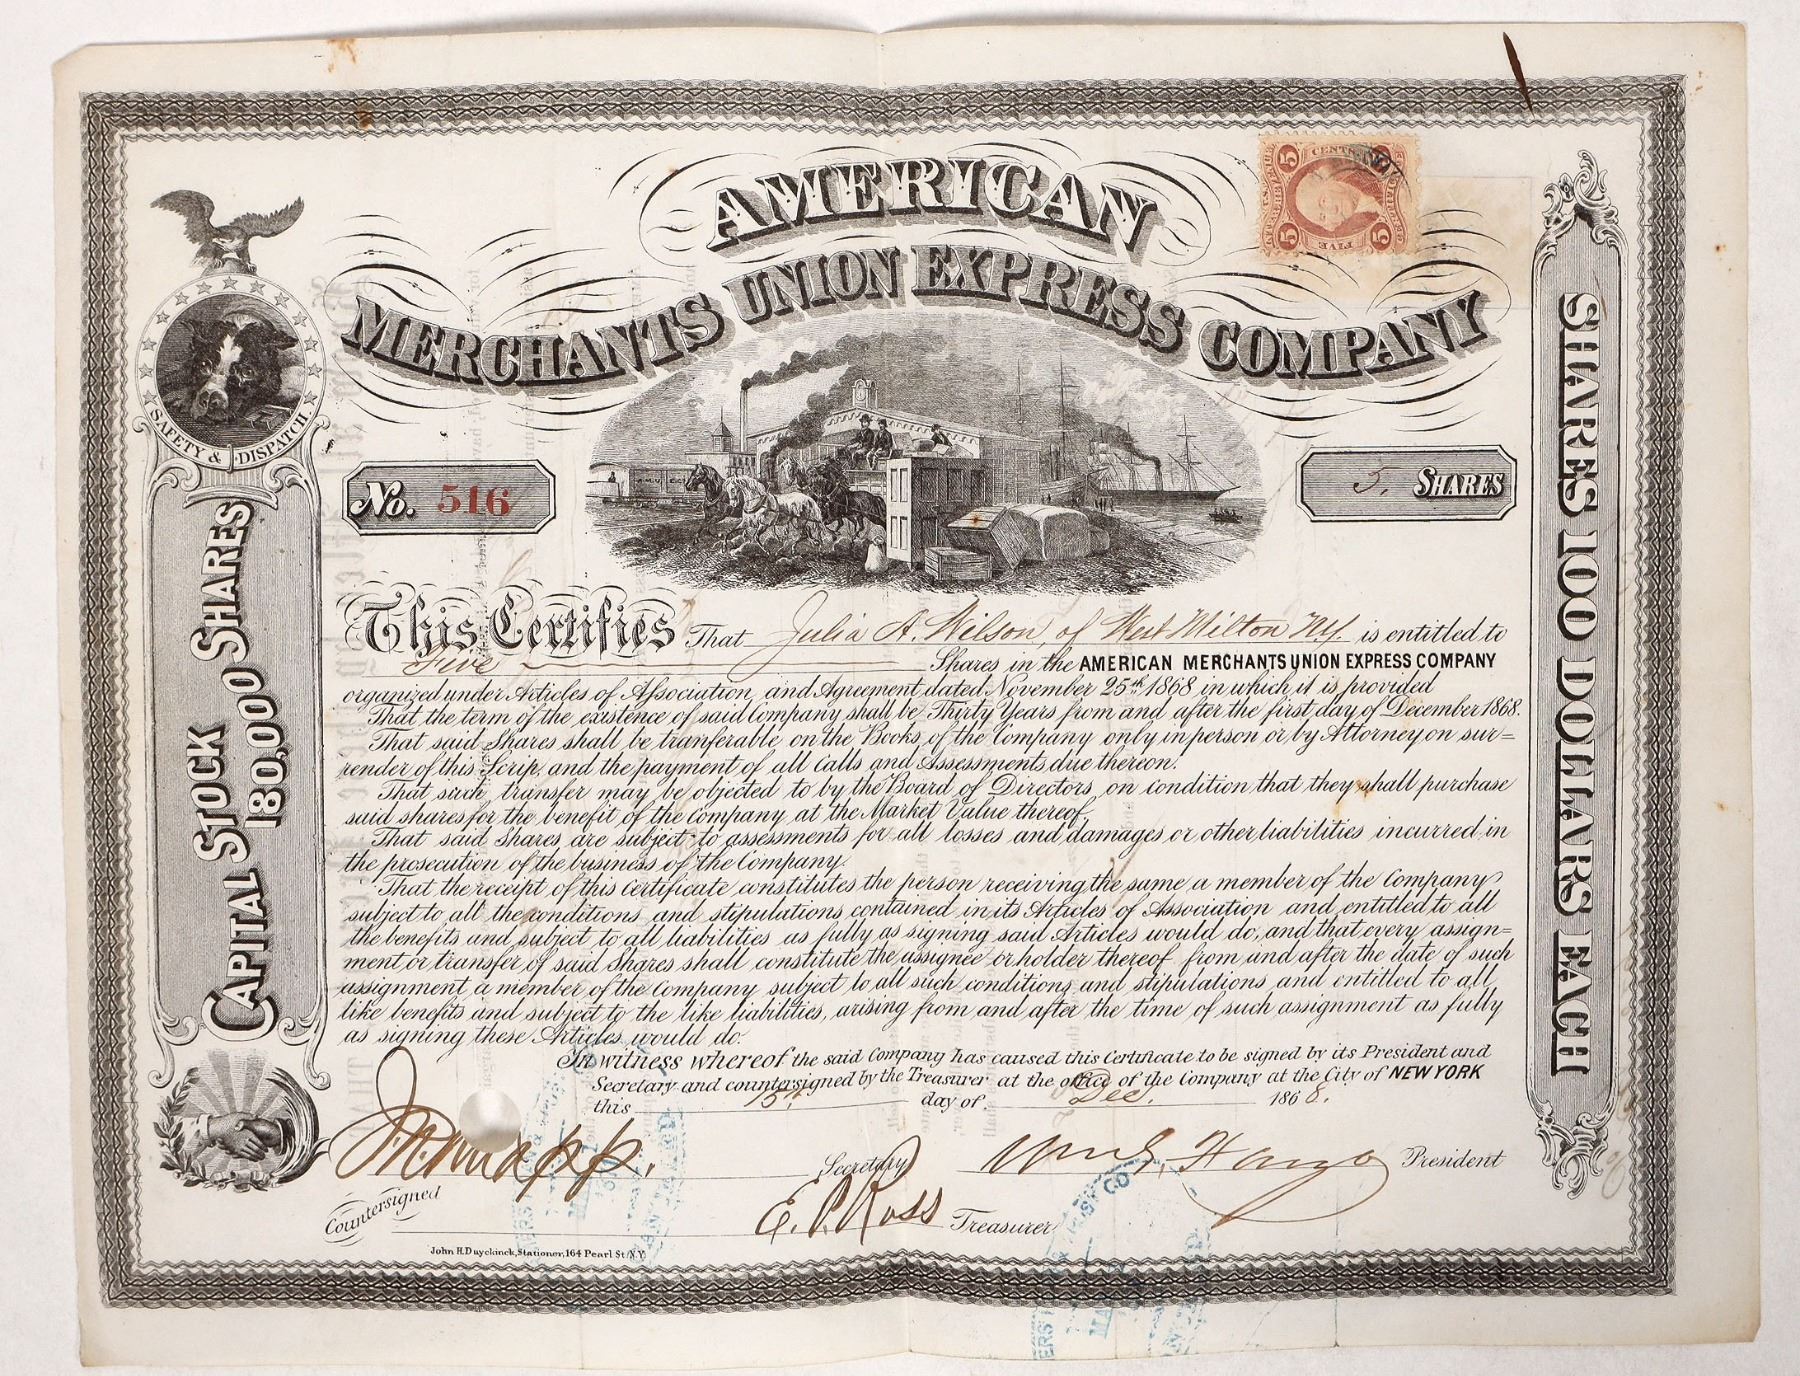 AMERICAN
MERCHANTS UNION EXPRESS COMPANY
5 CENTS 5
5 FIVE 5
SAFETY & DISPATCH
CAPITAL STOCK
180,000 SHARES
SHARES 100 DOLLARS EACH
No. 516
5. SHARES
This Certifies That Julia A. Wilson, of West Milton NY. is entitled to
Five Shares in the AMERICAN MERCHANTS UNION EXPRESS COMPANY
organized under Articles of Association and Agreement dated November 25th 1868 in which it is provided
That the term of the existence of said Company shall be Thirty Years from and after the first day of December 1868.
That said Shares shall be tranferable on the Books of the Company only in person or by Attorney on sur=
render of this Scrip, and the payment of all Calls and Assessments due thereon.
That such transfer may be objected to by the Board of Directors, on condition that they shall purchase
said shares for the benefit of the Company at the Market Value thereof.
That said Shares are subject to assessments for all losses and damages or other liabilities incurred in
the prosecution of the business of the Company.
That the receipt of this Certificate constitutes the person receiving the same a member of the Company
subject to all the conditions and stipulations contained in its Articles of Association and entitled to all
the benefits and subject to all liabilities as fully as signing said Articles would do, and that every assign=
ment or transfer of said Shares shall constitute the assignee or holder thereof from and after the date of such
assignment a member of the Company subject to all such conditions and stipulations and entitled to all
like benefits and subject to the like liabilities, arising from and after the time of such assignment as fully
as signing these Articles would do.
In witness whereof the said Company has caused this Certificate to be signed by its President and
Secretary and countersigned by the Treasurer at the office of the Company at the City of NEW YORK
this 15th day of Dec. 1868.
J.N. Knapp. Secretary Wm G. Fargo President
Countersigned E. P. Ross Treasurer
John H. Duyckinck, Stationer, 164 Pearl St. N.Y.